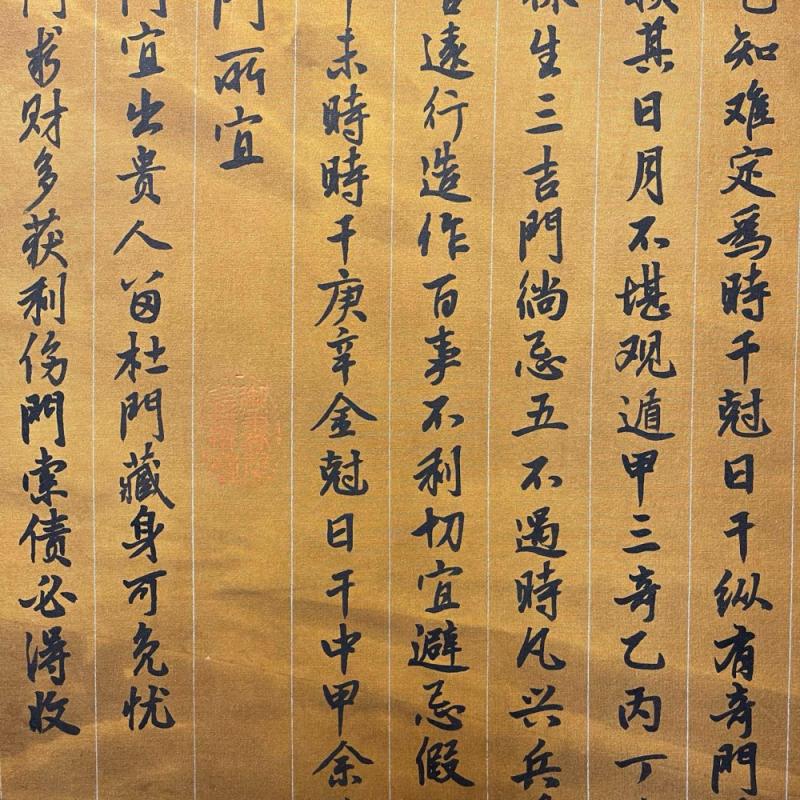 知难定爲時干尅日干纵有奇門
其日月不堪观遁甲三奇乙丙丁
生三吉門倘忌五不遇時凡兴兵
遠行造作百事不利切宜避忌假
未時時干庚辛金尅日干中甲余
門所宜
宜出贵人畄杜門藏身可免忧
求财多获利伤門索债必得收